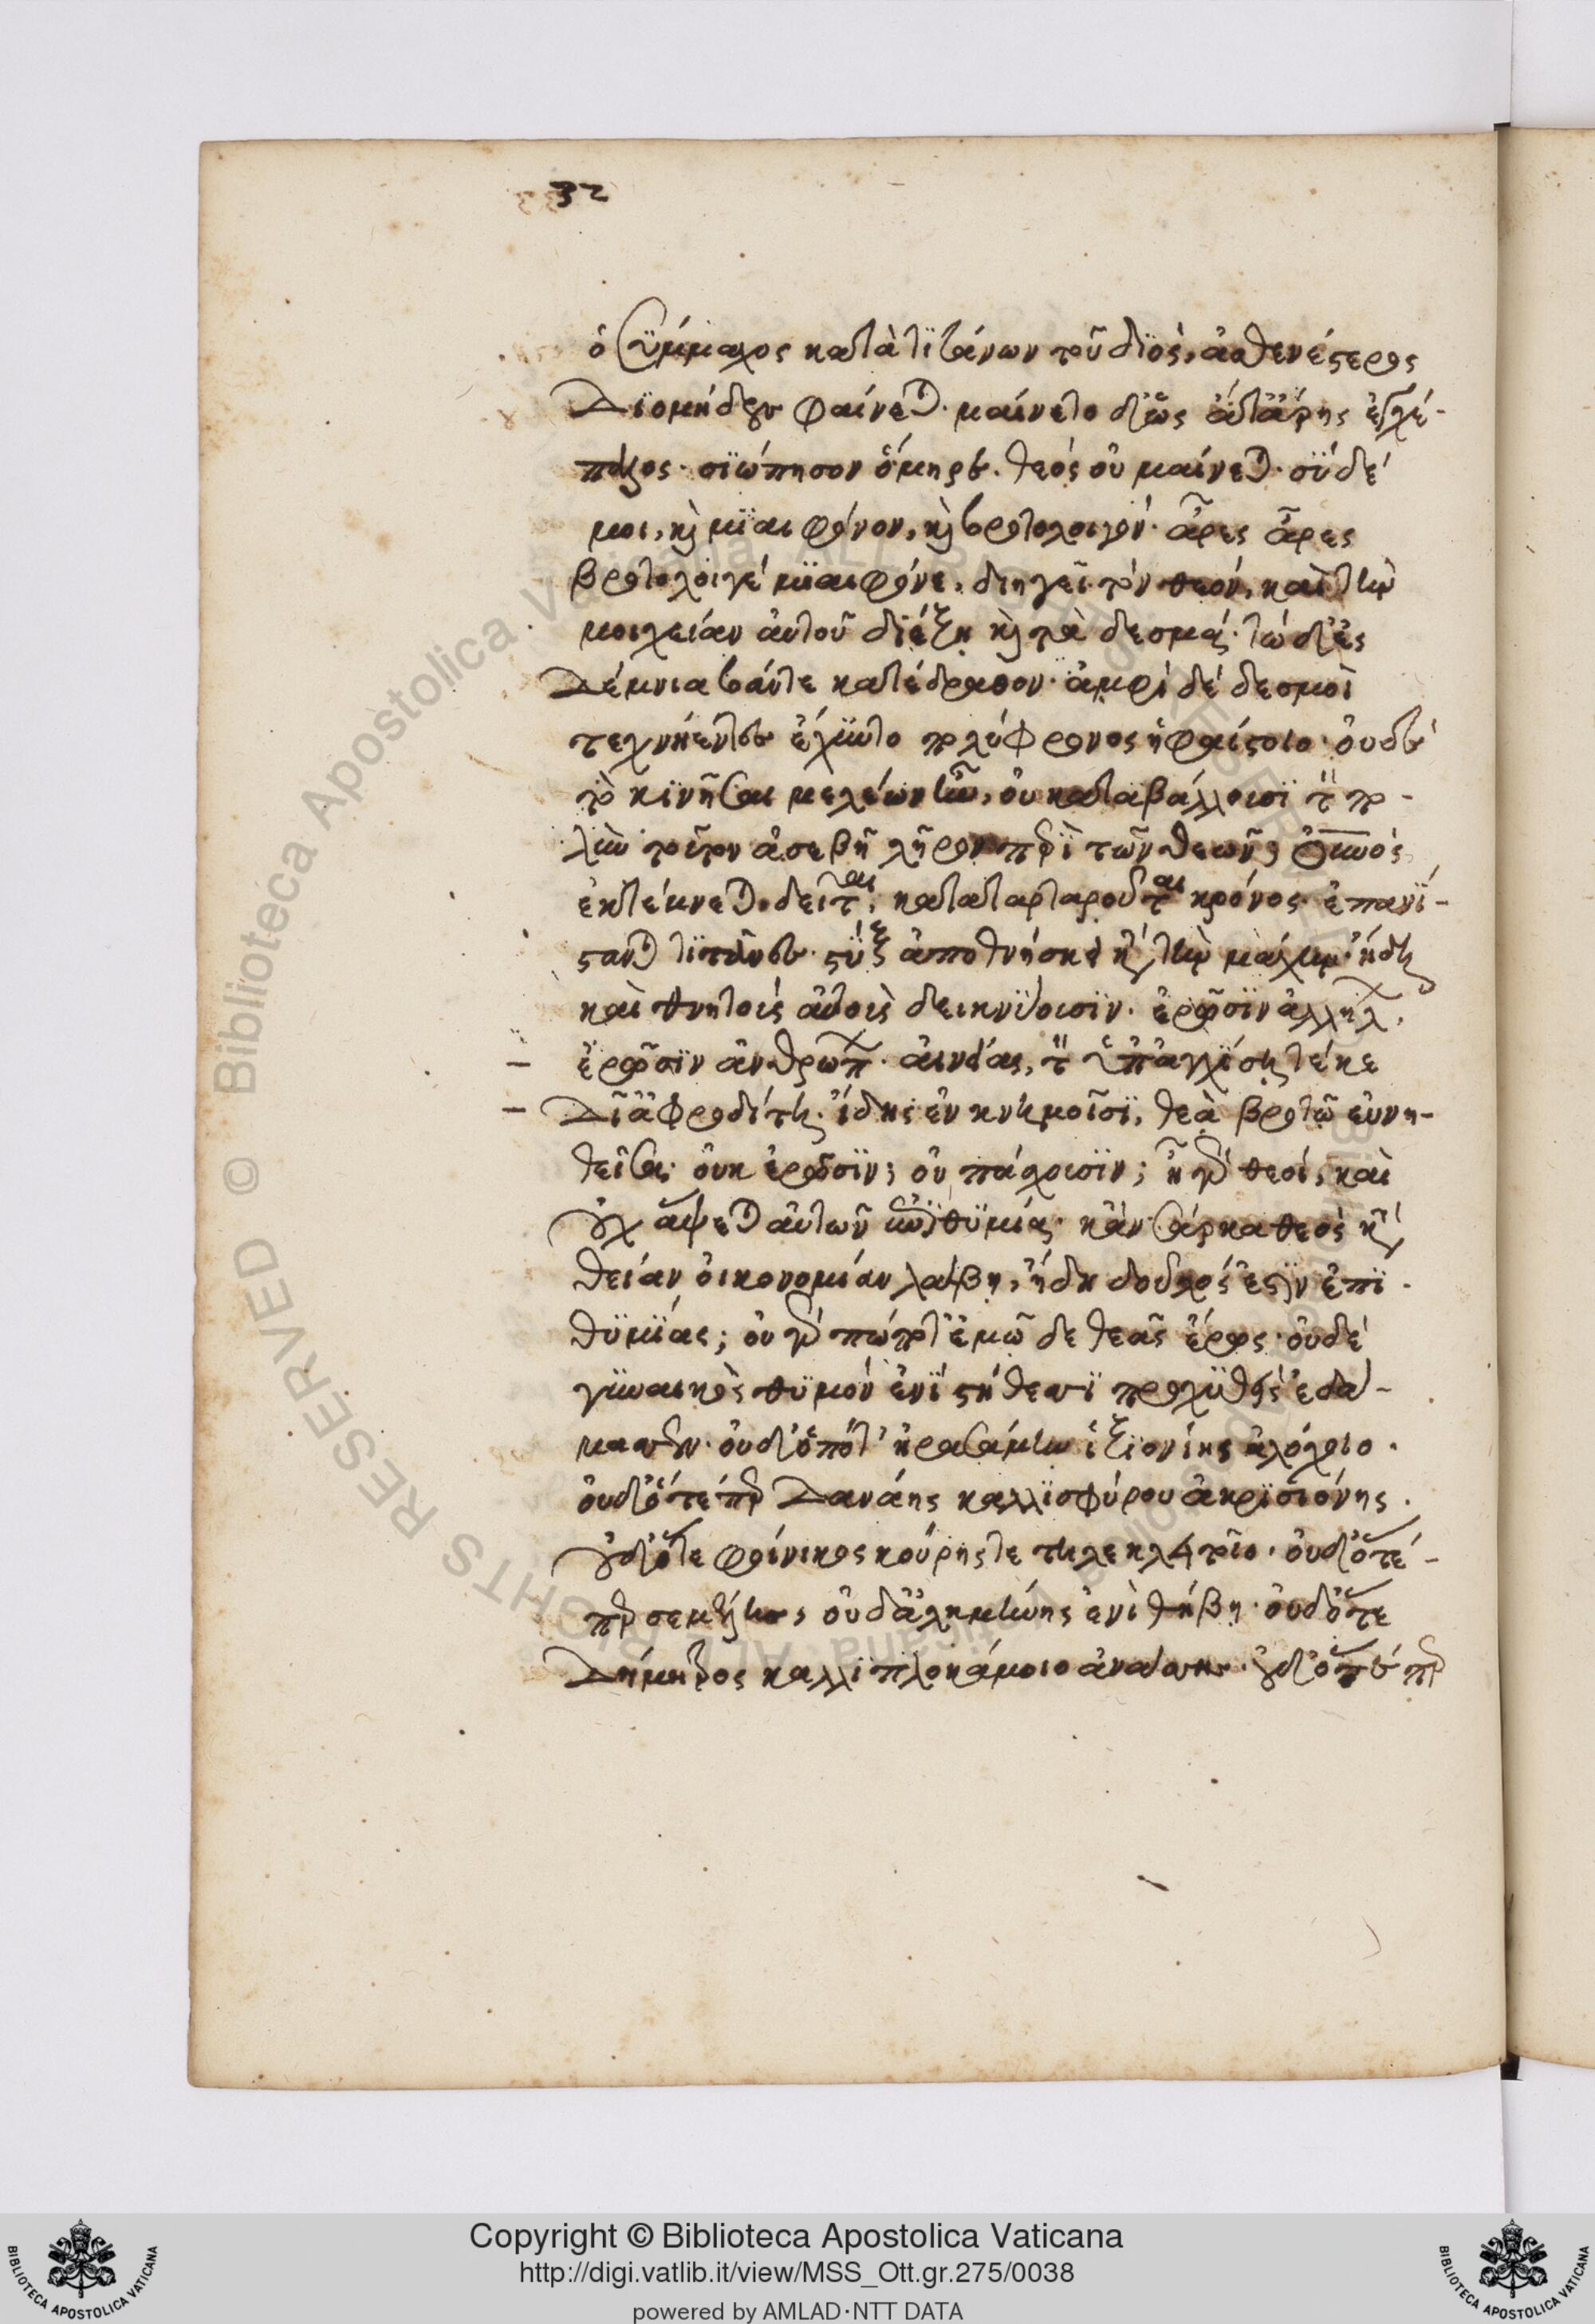 32
ὁ σύμμαχος κατὰ τιτάνων τοῦ διὸς, ἀσθενέστερος
Διομήδους φαίνεται. μαίνετο δ' ὡς ὅτ' ἄρης ἐγχέ-
παλος. σιώπησον ὅμηρε. θεὸς οὐ μαίνεται. σὺ δέ
μοι, καὶ μιαιφόνον, καὶ βροτολοιγόν. ἆρες ἆρες
βροτολοιγέ μιαιφόνε, διηγεῖ τὸν θεόν, καὶ τὴν
μοιχείαν αὐτοῦ διέξει καὶ τὰ δεσμά. τὼ δ' ἐς
Δέμνια βάντε κατέδραθον. ἀμφὶ δὲ δεσμοὶ
τεχνήεντες ἔχυντο πολύφρονος ἡφαίστοιο. οὐδέ
το κινῆσαι μελέων ἦν, οὐ καταβάλλουσι τὸν πο-
λὺν τοῦτον ἀσεβῆ λῆρον περὶ τῶν θεῶν; οὐρανὸς
ἐκτέμνεται. δεῖται, καταταρταροῦται κρόνος. ἐπανί-
στανται τιτᾶνες. στὺξ ἀποθνήσκει κατὰ τὴν μάχην. ἤδη
καὶ θνητοὺς αὐτοὺς δεικνύουσιν. ἐρῶσιν ἀλλήλων,
ἐρῶσιν ἀνθρώπων. αἰνείας, τὸν ὑπ' ἀγχίσῃ τέκε
Δῖ' ἀφροδίτη. ἴδης ἐν κνημοῖσι, θεὰ βροτῷ εὐνη-
θεῖσα. οὐκ ἐρῶσιν; οὐ πάσχουσιν; ἢ γὰρ θεοί, καὶ
οὐχ ἅψεται αὐτῶν ἐπιθυμία. κἂν σάρκα θεὸς κατὰ
θείαν οἰκονομίαν λάβῃ, ἤδη δοῦλός ἐστιν ἐπι-
θυμίας; οὐ γὰρ πώποτ' ἐμῶ δε θεᾶς ἔρος. οὐδὲ
γυναικὸς θυμὸν ἐνὶ στήθεσσι προχυθεὶς ἐδά-
μασσεν. οὐδ' ὁπότ' ἠρασάμην ἰξιονίης ἀλόχοιο.
οὐδ' ὅτέ περ Δανάης καλλισφύρου ἀκρισιόνης.
οὐδ' ὅτε φοίνικος κούρης τε τηλεκλητοῖο. οὐδ' ὅτέ-
περ σεμέλης, οὐδ' ἀλκμήνης ἐνὶ θήβῃ. οὐδ' ὅτε
Δήμητρος καλλιπλοκάμοιο ἀνάσσης. οὐδ' ὁπότέ περ
Copyright © Biblioteca Apostolica Vaticana
http://digi.vatlib.it/view/MSS_Ott.gr.275/0038
powered by AMLAD·NTT DATA